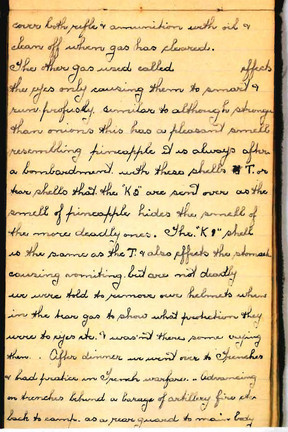 cover both rifle & ammunition with oil &
clean off when gas has cleared.
The other gas used called effects
the eyes only causing them to smart &
run, profusely similar to although stronger
than onions this has a pleasant smell
resembling pineapple it is always after
a bombardment with these shells T. or
tear shells that the "K5" are sent over as the
smell of pineapple hides the smell of
the more deadly ones. The shell
is the same as the T. & also effects the stomach
causing vomiting. but are not deadly
we were told to remove our helmets when
in the tear gas to show what protection they
were to eyes etc. & wasn't there some crying
then. . After dinner we went over to Trenches
& had practice in Trench warfare. .. Advancing
on trenches behind a barage of artillery fire etc.
back to camp. as a rear guard to main body